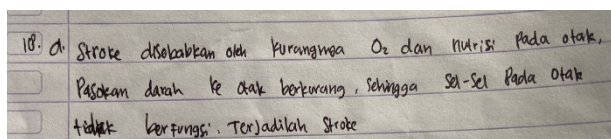 18. a. Stroke disebabkan oleh kurangnya O₂ dan nutrisi pada otak,
Pasokan darah ke otak berkurang, sehingga sel-sel pada otak
tidak berfungsi. Terjadilah stroke